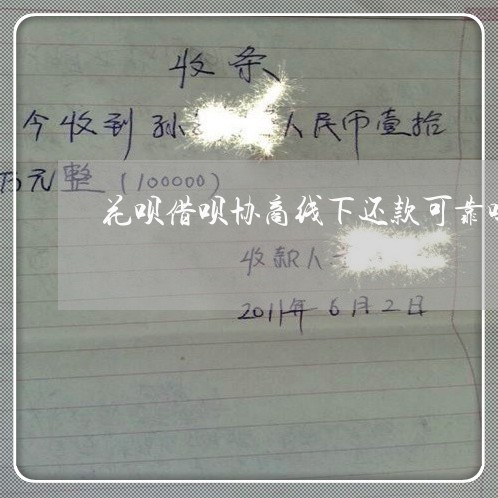 收条
今收到孙 人民币壹拾
万元整（100000）
花呗借呗协商线下还款可靠
收款人
2011年6月2日